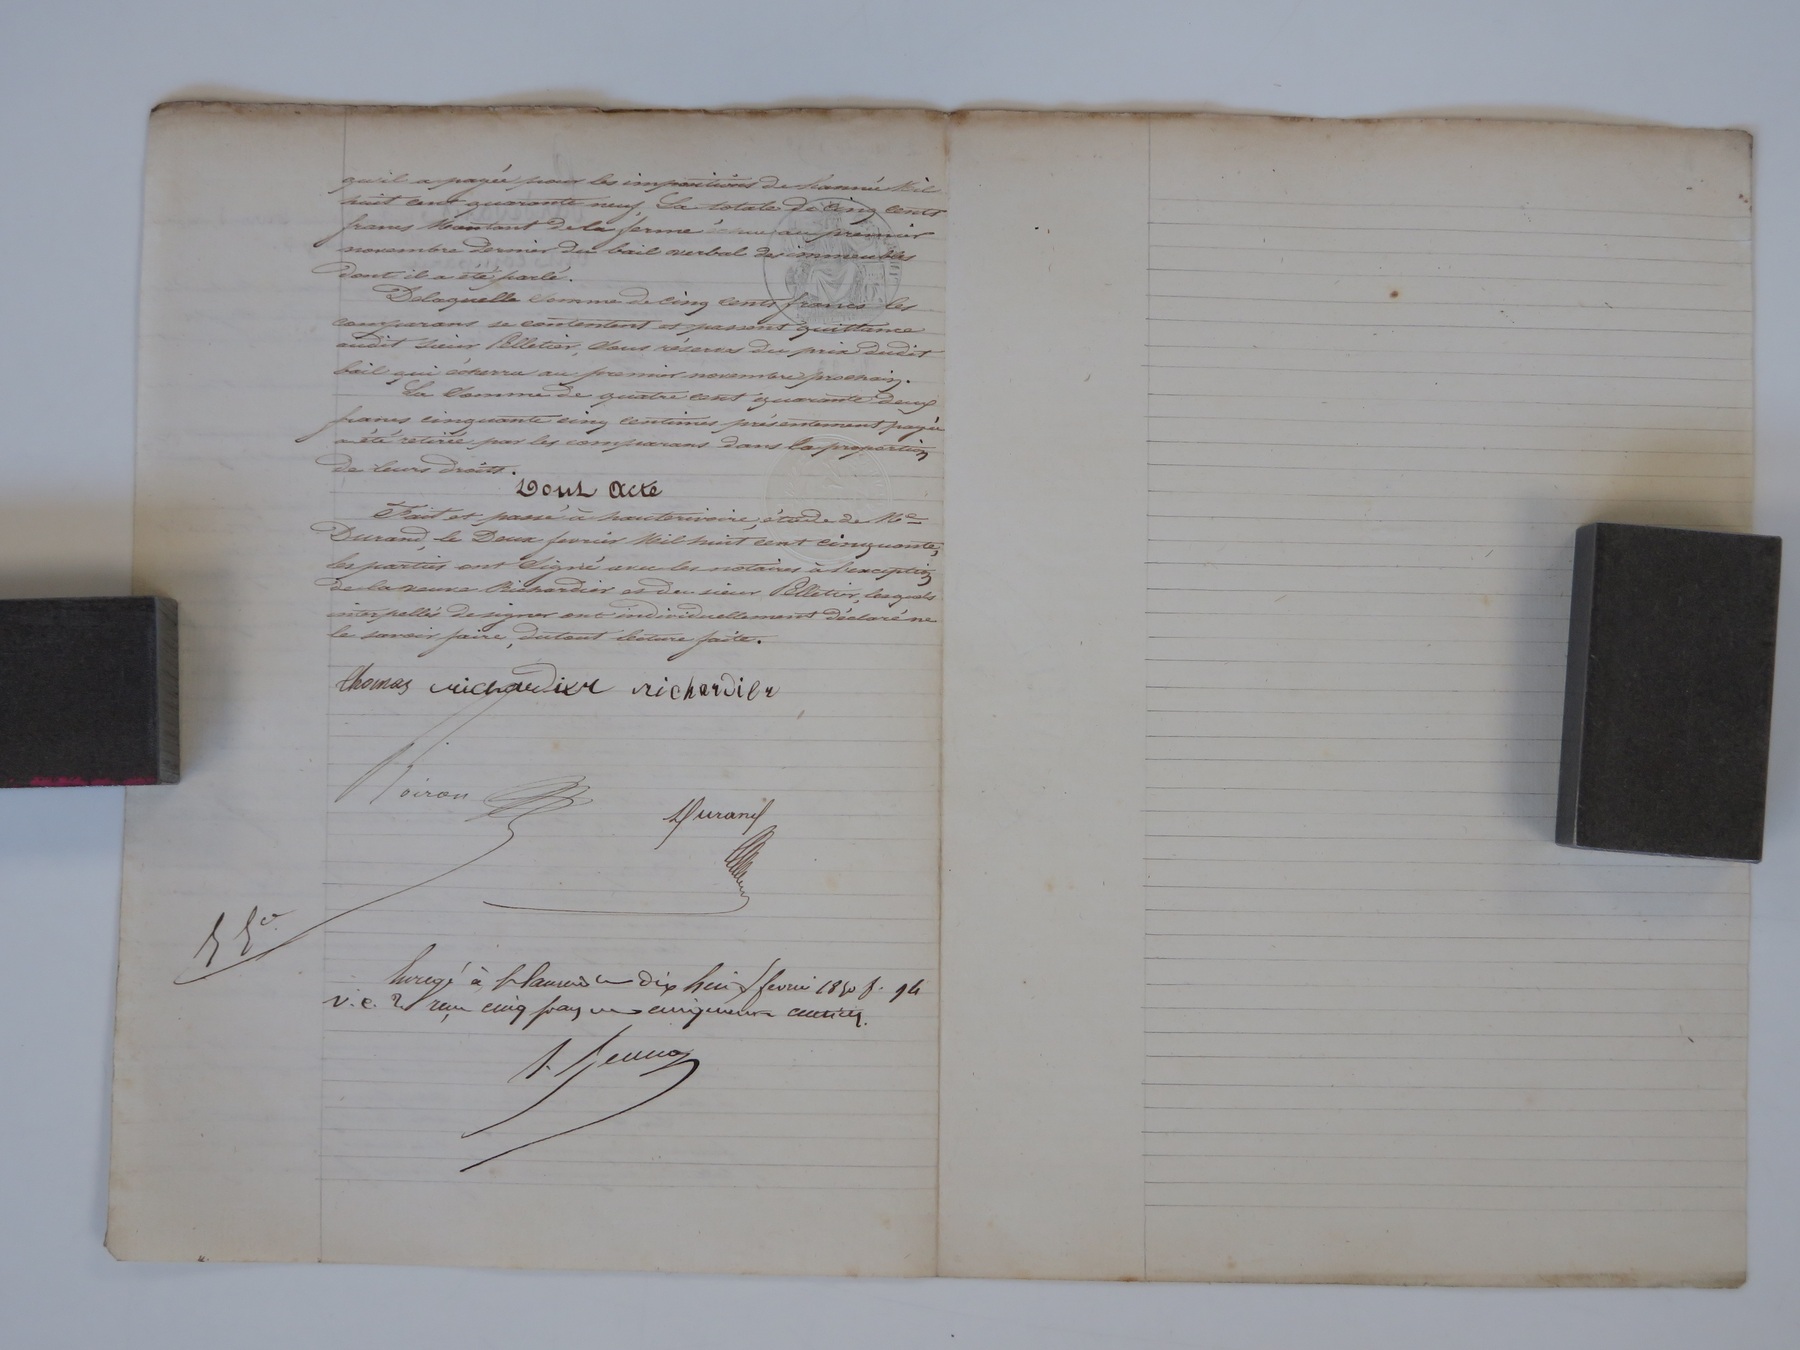 qu'il a payée pour les impositions de l'année Mil
huit cent quarante neuf. La totale de Cinq Cents
francs Montant de la ferme échue au premier
novembre dernier du bail verbal des immeubles
dont il a été parlé.
Delaquelle Somme de Cinq Cents francs les
comparans se contentent et passent quittance
audit Sieur Pelletier, Sous réserves du prix dudit
bail qui écherra au premier novembre prochain.
La Somme de quatre cent quarante deux
francs cinquante cinq centimes présentement payée
a été retirée par les comparans dans la proportion
de leurs droits.
Dont Acte
Fait et passé à hauterivoire, étude de Me
Durand, le Deux fevrier Mil huit cent cinquante,
les parties ont Signé avec les notaires à l'exception
de la veuve Richardier et du sieur Pelletier, lesquels
interpellés de signer ont individuellement déclaré ne
le savoir faire, dutout lecture faite.
thomas richardier richardier
Poiron
Durand
Enregé à St Laurent le dix huit fevrier 1850 f. 94
v. c. 2. reçu cinq francs cinquante centimes.